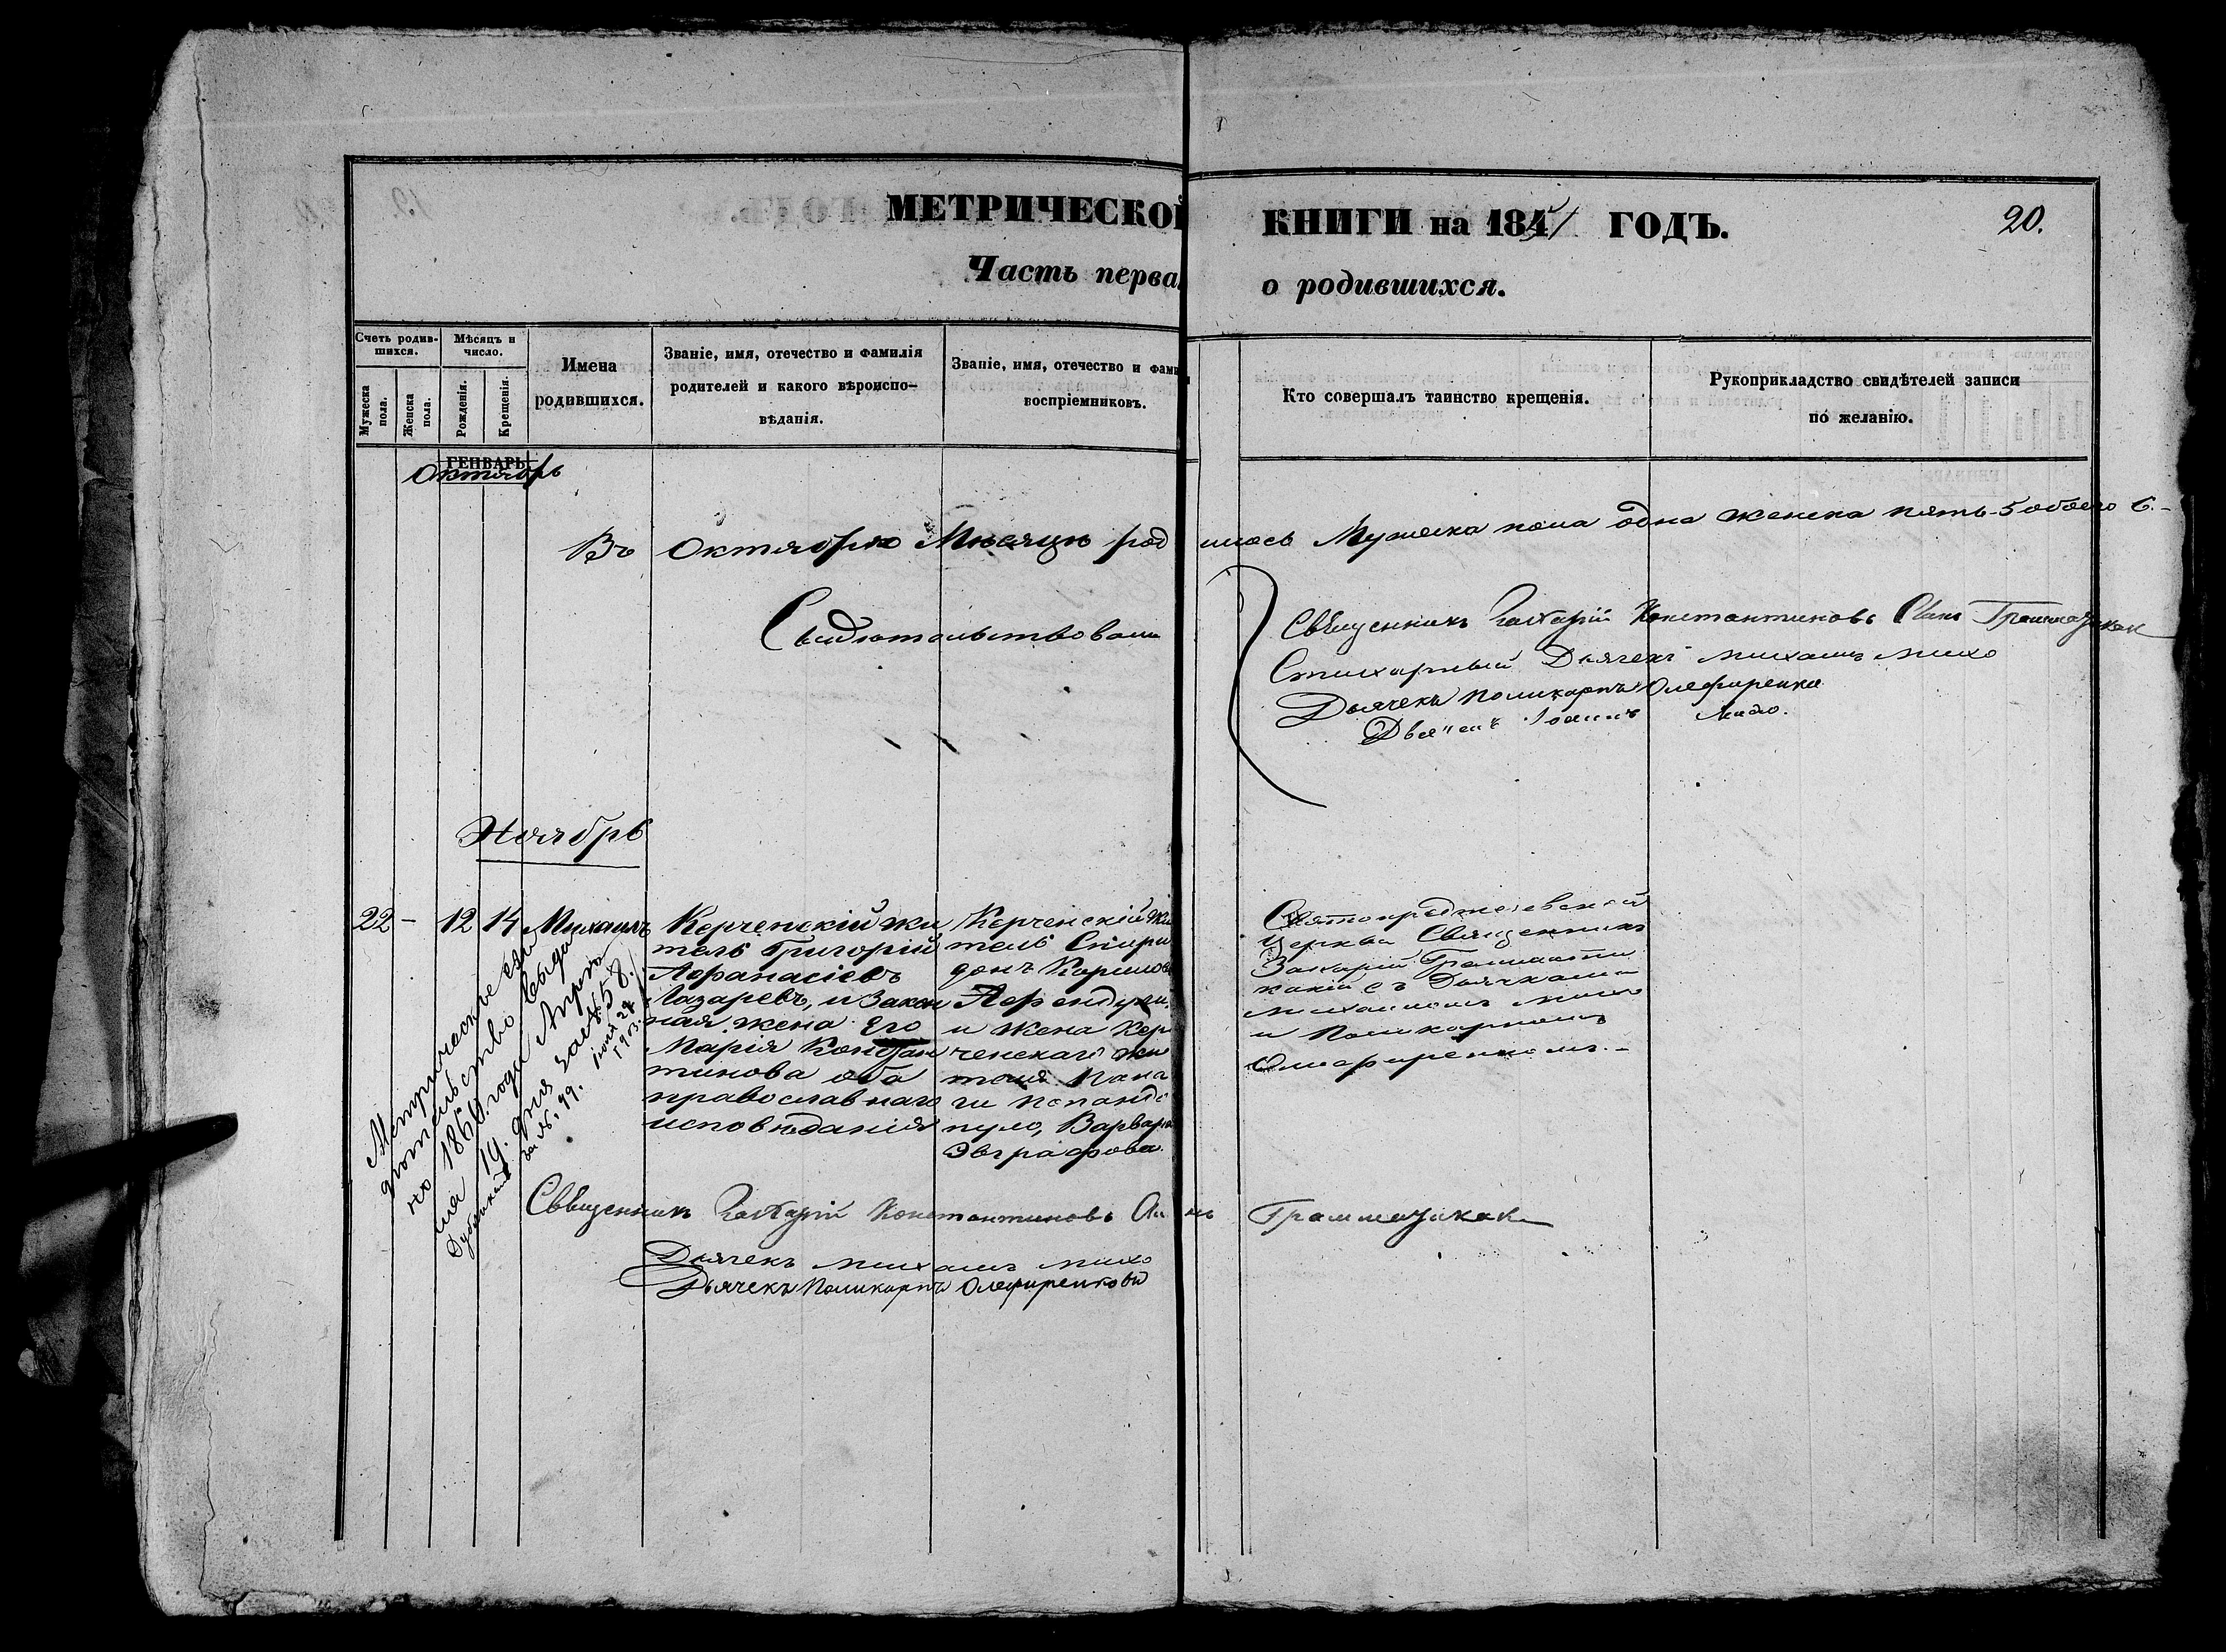 МЕТРИЧЕСКОЙ КНИГИ на 1851 ГОДЪ.
20.
Часть перва о родившихся.
Счетъ родив-
шихся.
Мужеска пола.
Женска пола.
Мѣсяцъ и
число.
Рожденія.
Крещенія.
Имена
родившихся.
Званіе, имя, отечество и фамилія
родителей и какого вѣроиспо-
вѣданія.
Званіе, имя, отечество и фами
воспріемниковъ.
Кто совершалъ таинство крещенія.
Рукоприкладство свидѣтелей записи
по желанію.
ГЕНВАРЬ
Октябрь
Въ Октябрѣ Мѣсяцѣ род илось Мужеска пола одна женска пять 5 обоего 6.
Свидѣтельствовали
Священникъ Захарій Константиновъ Грамматикаки
Стихарный Дьячекъ Михаилъ Михо
Дьячекъ Поликарпъ Олефиренко
Іоаннъ
Ноябрь
22 - 12 14 Михаилъ
Керченскій жи
тель Григорій
Афанасіевъ
Лазаревъ, и закон
ная жена его
Марія Констан
тинова оба
православнаго
исповѣданія
Керченскій жи
тель Спири
донъ
и жена Кер
ченскаго жи
теля Пана
ги Попандо
пуло, Варвара
Эвграфова.
Святопредтечевской
церкви Священникъ
Захарій Граммати
какій съ Дьячками
Михаиломъ Михо
и Поликарпомъ
Олефиренкомъ.-
Метрическое сви
дѣтельство выда
но 1860 года Апрѣ
ля 19. дня за № 58.
Дубликатъ за № 99. іюня 27 1913.
Священникъ Захарій Константиновъ Грамматикаки
Дьячекъ Михаилъ Михо
Дьячекъ Поликарпъ Олефиренковъ